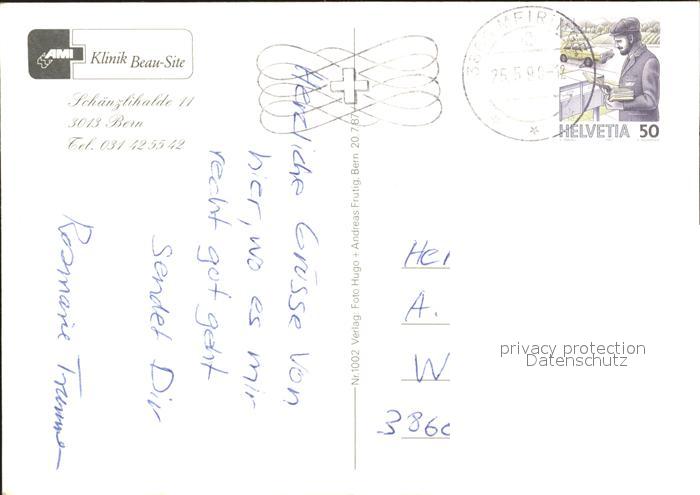 AMI
Klinik Beau-Site
Schänzlihalde 11
3013 Bern
Tel. 031 42 55 42
HELVETIA 50
Herzliche Grüsse von
hier, wo es mir
recht gut geht
sendet Dir
Rosmarie
Nr. 1002 Verlag: Foto Hugo + Andreas Frutig, Bern 20.7.87
A.
W
privacy protection
Datenschutz